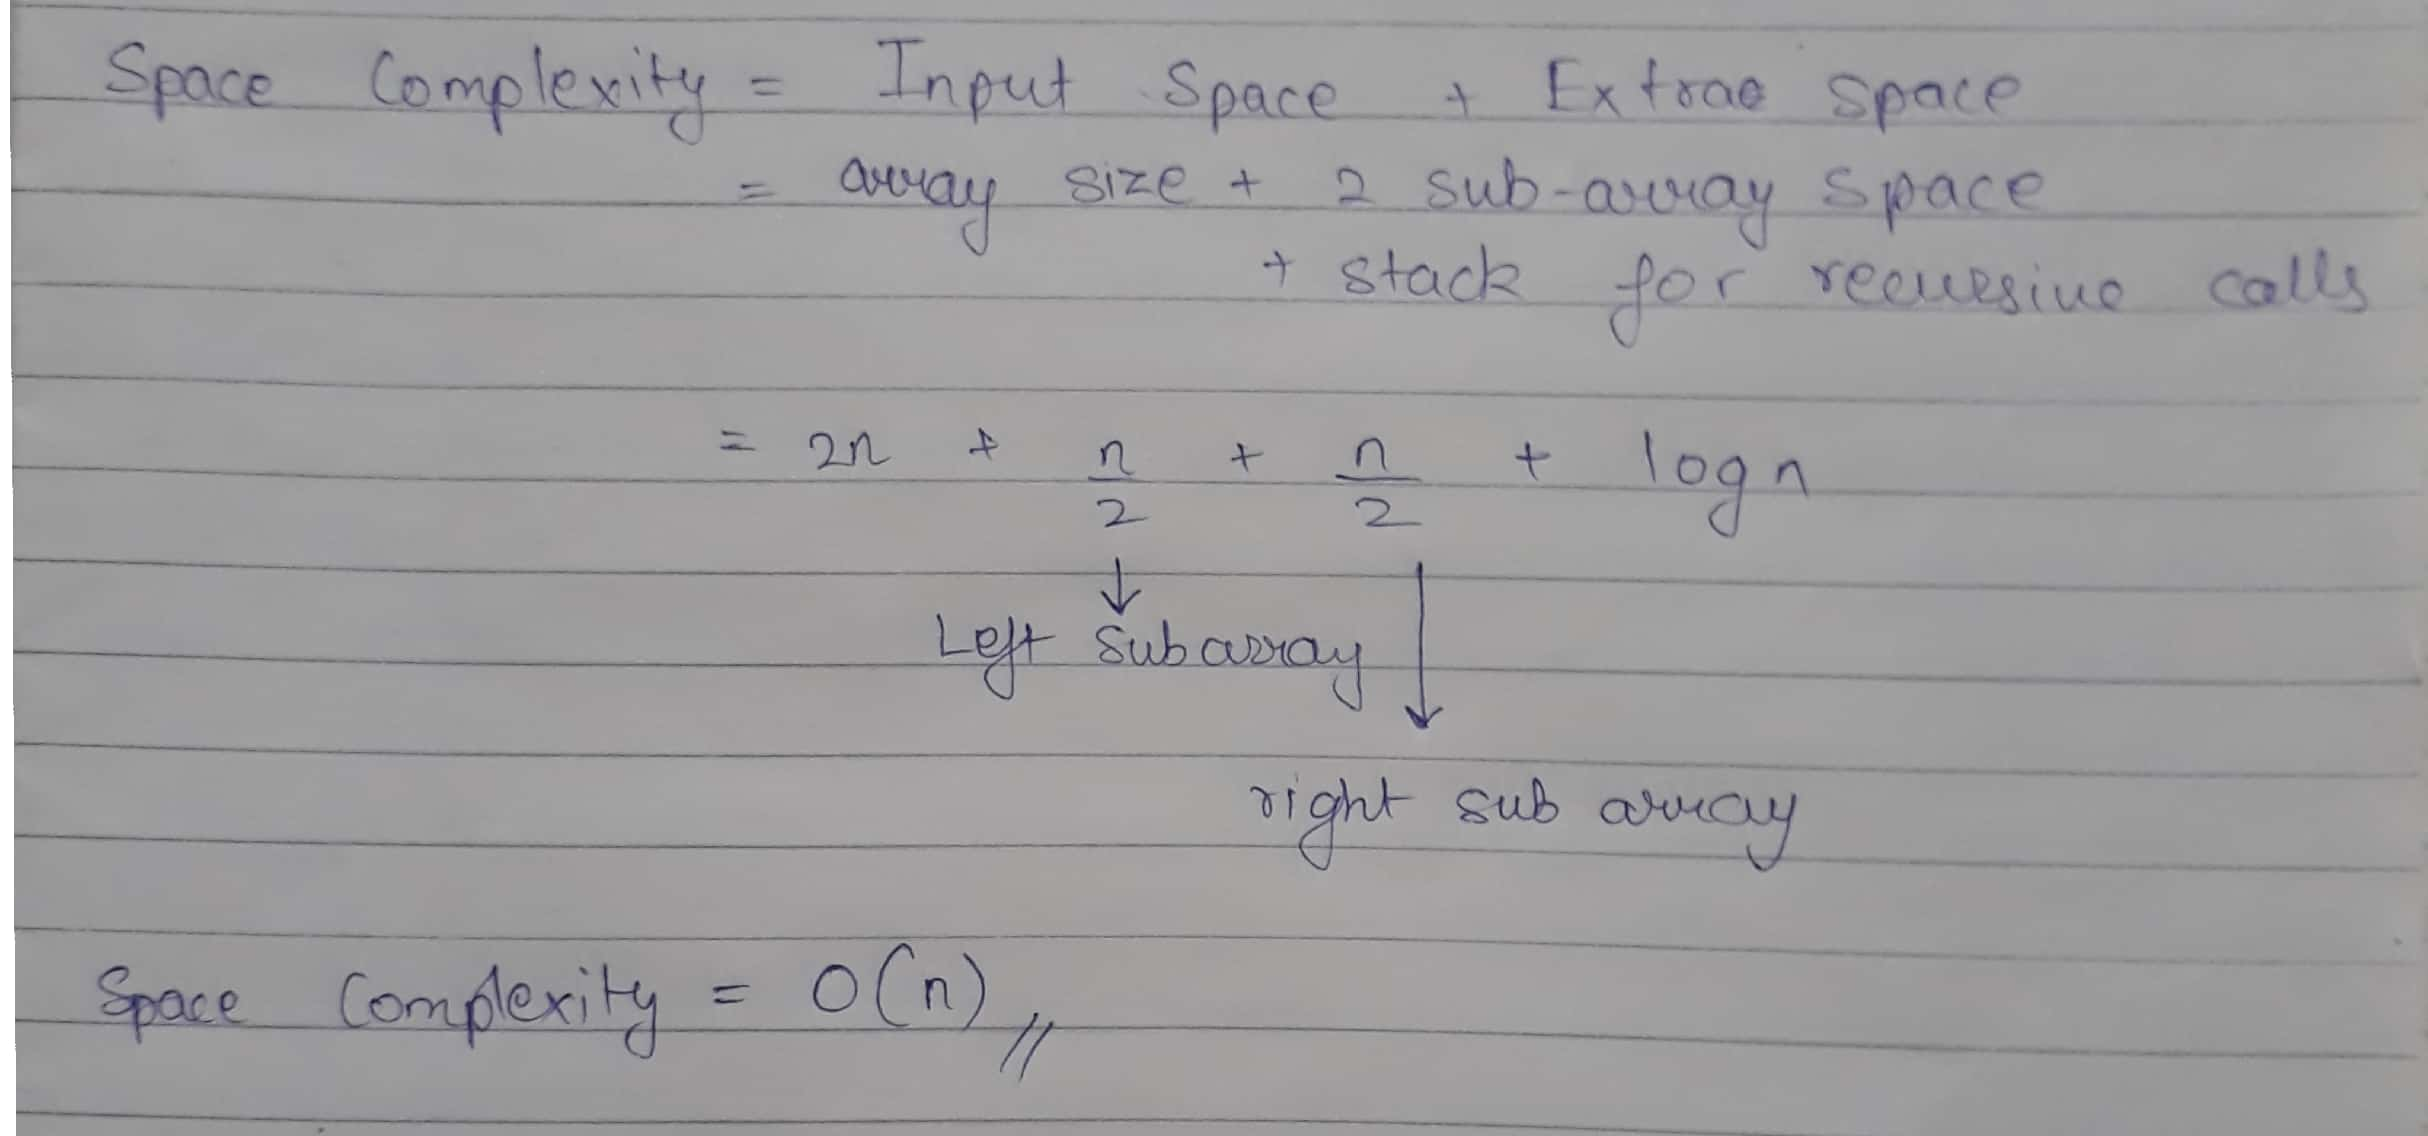 Space Complexity = Input Space + Extrae space
= array size + 2 sub-array space
+ stack for recursive calls
= 2n + n/2 + n/2 + log n
Left subarray
right sub array
Space Complexity = O(n) //